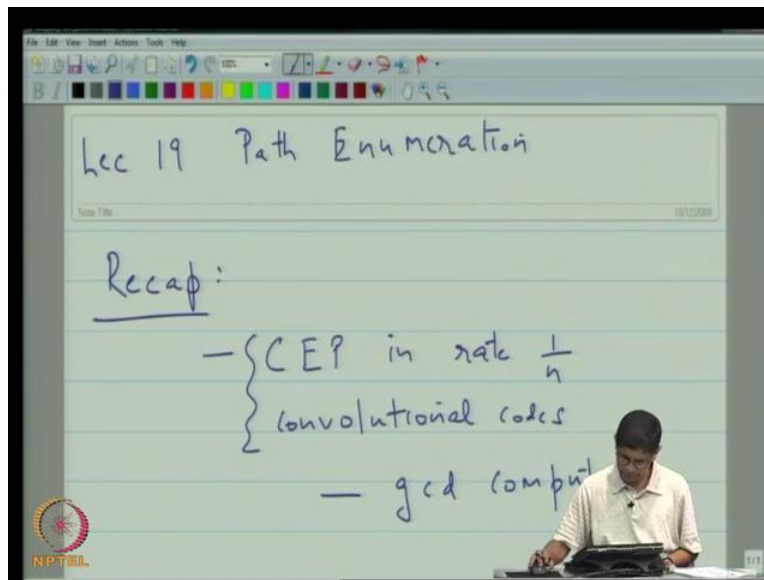 File Edit View Insert Actions Tools Help
100%
B I
Lec 19 Path Enumeration
Note Title
10/12/2009
Recap:
— { CEP in rate 1/n
convolutional codes
— gcd comput
NPTEL
1/1